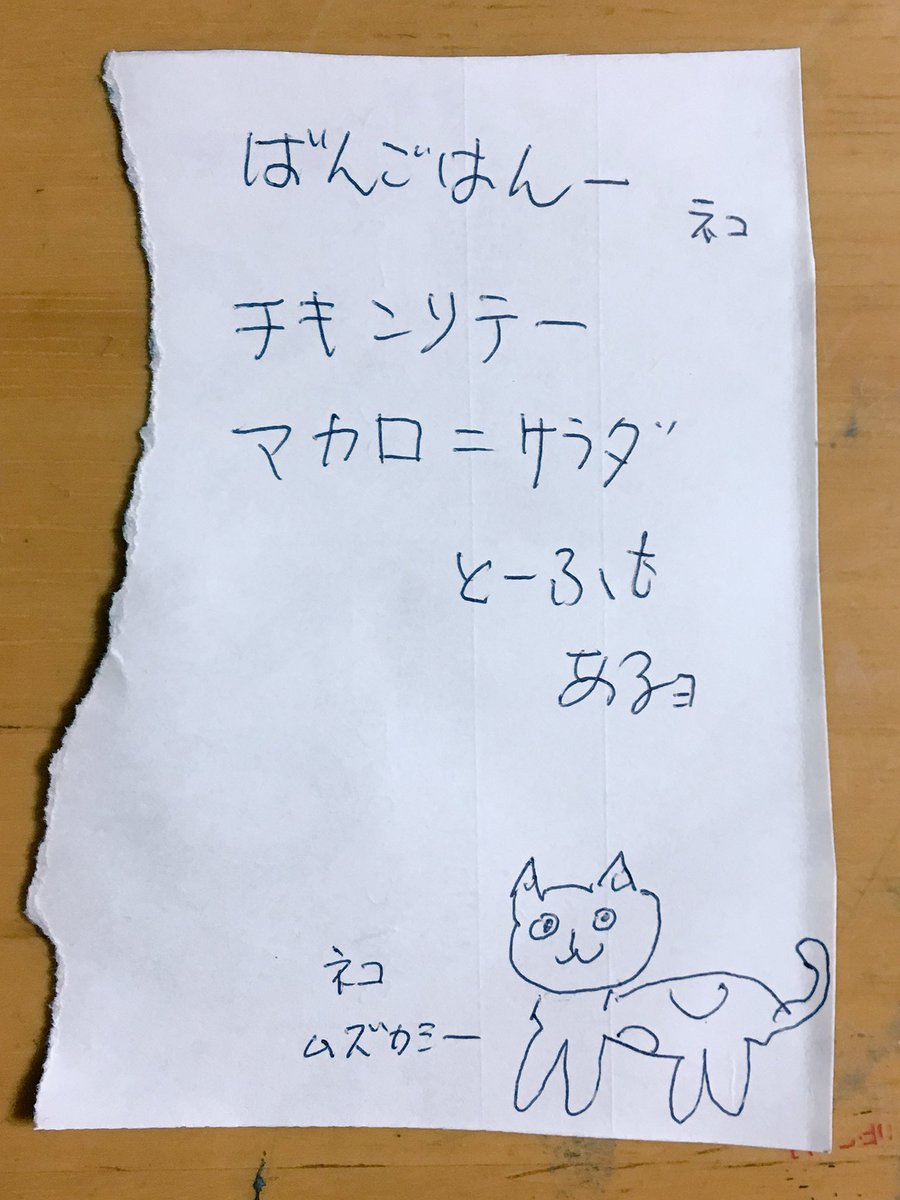 ばんごはんー
ネコ
チキンソテー
マカロニサラダ
とーふも
あるヨ
ネコ
ムズカシー